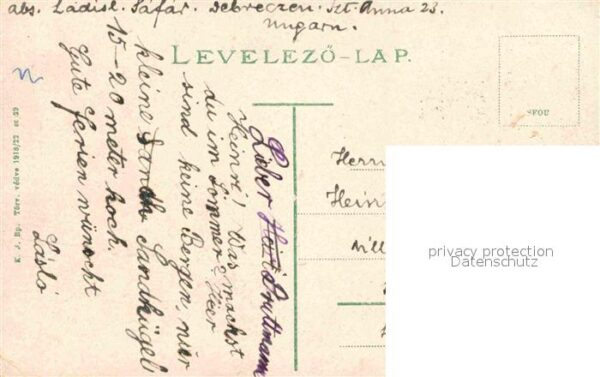 abs. Ladisl. Sáfár. Debreczen. Szt. Anna 23.
Ungarn.
LEVELEZŐ-LAP.
Lieber Heini
Heinri! Was machst
du im Sommer? Hier
sind keine Bergen, nur
kleine Sandhügel
15-20 meter hoch.
Gute Ferien wünscht
Láśló
Herrn
Hein
Vill
privacy protection
Datenschutz